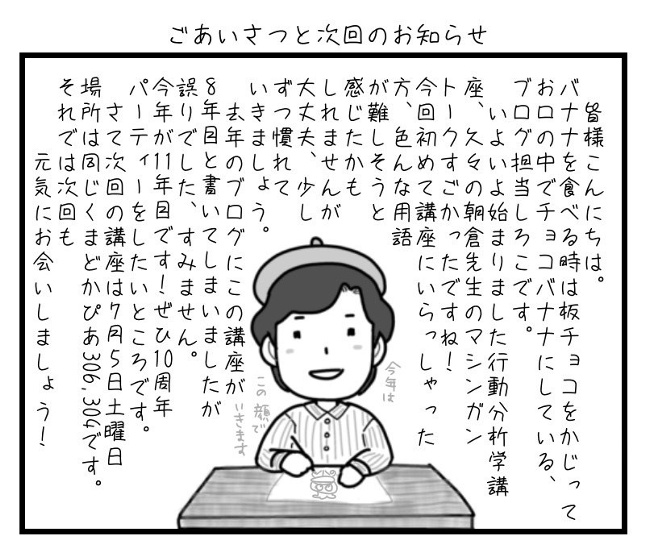 ごあいさつと次回のお知らせ
皆様こんにちは。
バナナを食べる時は板チョコをかじって
お口の中でチョコバナナにしている、
ブログ担当しろこです。
いよいよ始まりました行動分析学講
座、久々の朝倉先生のマシンガン
トークすごかったですね！
今回初めて講座にいらっしゃった
方、色んな用語
が難しそうと
感じたかも
しれませんが
大丈夫、少し
ずつ慣れて
いきましょう。
去年のブログにこの講座が
8年目と書いてしまいましたが
誤りでした、すみません。
今年が11年目です！ぜひ10周年
パーティーをしたいところです。
さて次回の講座は7月5日土曜日
場所は同じくまどかぴあ306,304です。
それでは次回も
元気にお会いしましょう！
今年は
この顔で
いきます